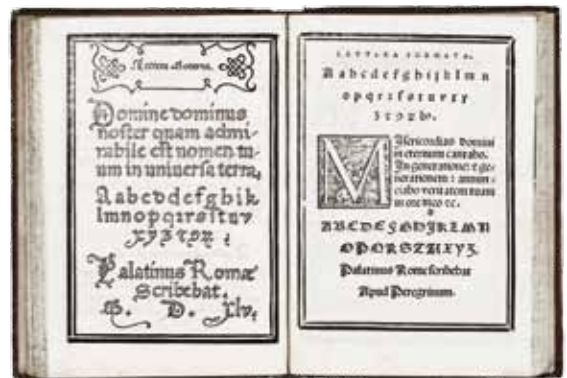 Domine dominus
noster quam admi-
rabile est nomen tu-
um in universa terra,
Aabcddefghik
lmnopqrsstuv
Palatinus Romæ
Scribebat.
LETTERA FORMATA.
Aabcdefghijklmn
opqrsſtuvxy
Misericordias Domini
in eternum cantabo.
In generatione: et ge-
nerationem: annun-
ciabo veritatem tuam
in ore meo
ABCDEFGHIJKLMN
OPQRSTUXYZ
Palatinus Rome scribebat
Apud Peregrinum.